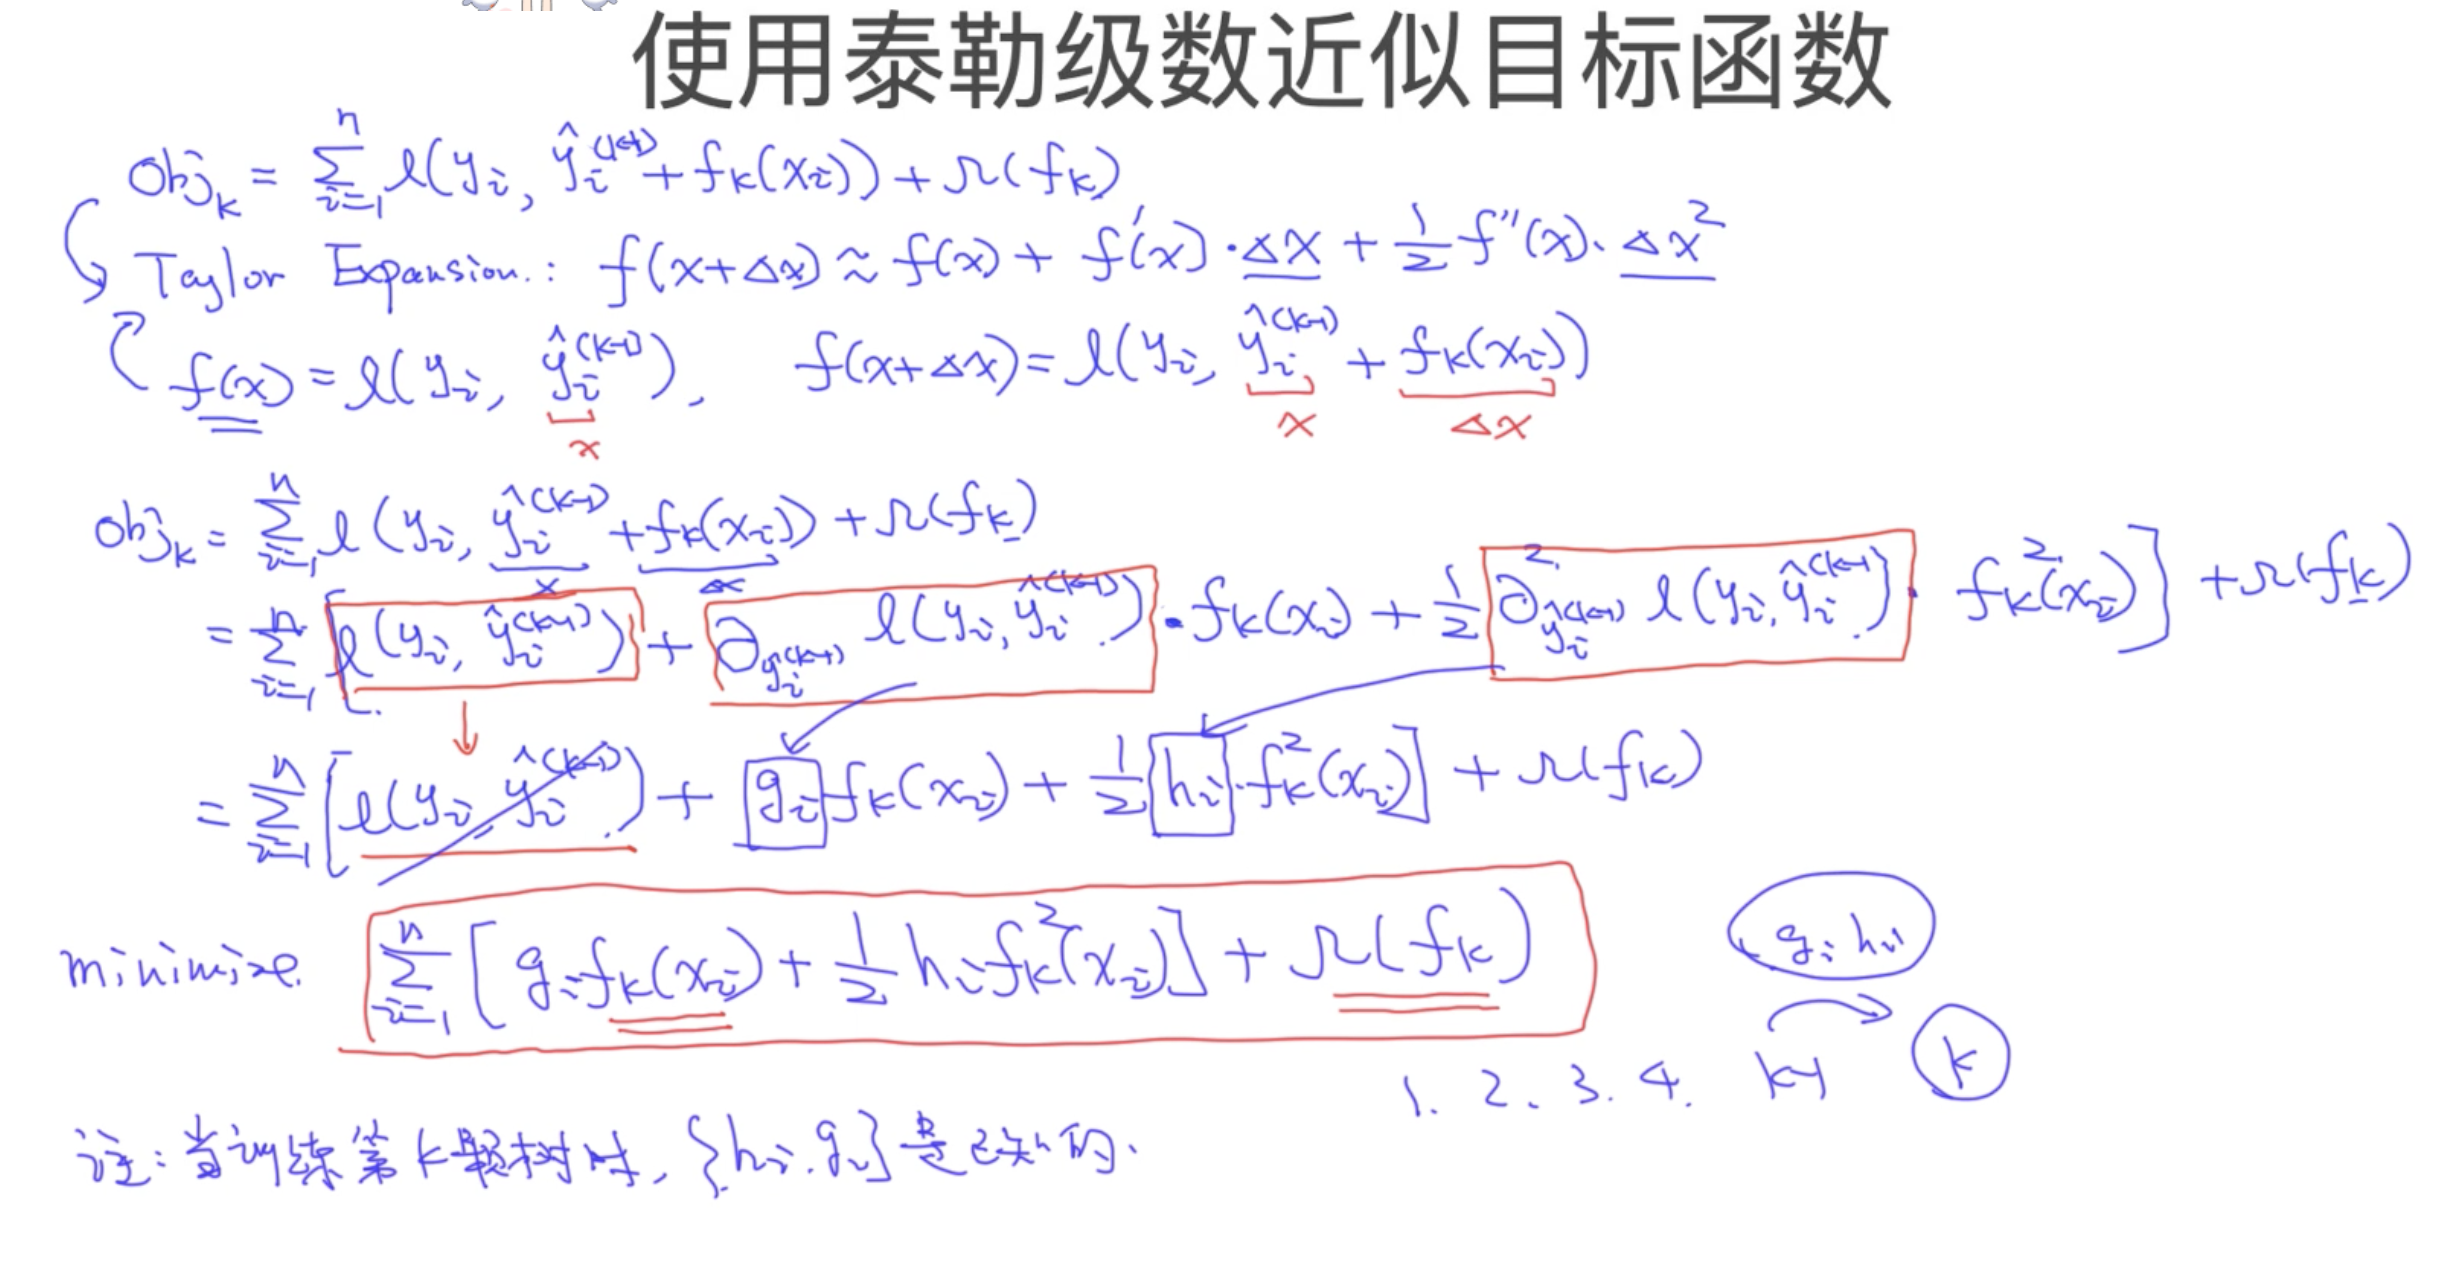 使用泰勒级数近似目标函数
Obj_k = Σ_{i=1}^{n} l(y_i, ŷ_i^{(k-1)} + f_k(x_i)) + Ω(f_k)
Taylor Expansion.: f(x+Δx) ≈ f(x) + f'(x)·Δx + 1/2 f''(x)·Δx²
f(x) = l(y_i, ŷ_i^{(k-1)}), f(x+Δx) = l(y_i, ŷ_i^{(k-1)} + f_k(x_i))
x x Δx
obj_k = Σ_{i=1}^{n} l(y_i, ŷ_i^{(k-1)} + f_k(x_i)) + Ω(f_k)
x Δx
= Σ_{i=1}^{n} [l(y_i, ŷ_i^{(k-1)}) + ∂_{ŷ_i^{(k-1)}} l(y_i, ŷ_i^{(k-1)})·f_k(x_i) + 1/2 ∂²_{ŷ_i^{(k-1)}} l(y_i, ŷ_i^{(k-1)})·f_k²(x_i)] + Ω(f_k)
= Σ_{i=1}^{n} [l(y_i, ŷ_i^{(k-1)}) + g_i f_k(x_i) + 1/2 h_i·f_k²(x_i)] + Ω(f_k)
minimize. Σ_{i=1}^{n} [g_i f_k(x_i) + 1/2 h_i f_k²(x_i)] + Ω(f_k)
g_i h_i
1. 2. 3. 4. k-1 k
注: 当训练第k颗树时, {h_i. g_i}是已知的.